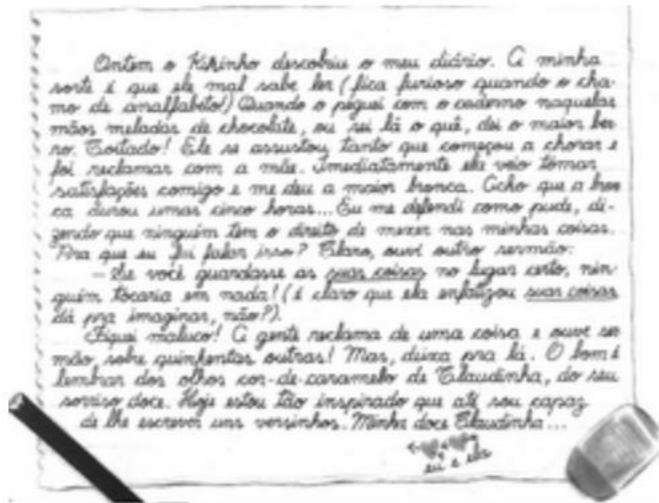 Ontem o Kikinho descobriu o meu diário. A minha
sorte é que ele mal sabe ler (fica furioso quando o cha-
mo de analfabeto!) Quando o peguei com o caderno naquelas
mãos meladas de chocolate, ou sei lá o quê, dei o maior ber
ro. Coitado! Ele se assustou tanto que começou a chorar e
foi reclamar com a mãe. Imediatamente ela veio tomar
satisfações comigo e me deu a maior bronca. Acho que a bron
ca durou umas cinco horas... Eu me defendi como pude, di-
zendo que ninguém tem o direito de mexer nas minhas coisas.
Pra que eu fui falar isso? Claro, ouvi outro sermão:
— Se você guardasse as suas coisas no lugar certo, nin-
guém tocaria em nada! (é claro que ela enfatizou suas coisas
dá pra imaginar, não?).
Fiquei maluco! A gente reclama de uma coisa e ouve ser
mão sobre quinhentas outras! Mas, deixa pra lá. O bom é
lembrar dos olhos cor-de-caramelo de Claudinha, do seu
sorriso doce. Hoje estou tão inspirado que até sou capaz
de lhe escrever uns versinhos. Minha doce Claudinha...
eu e ela